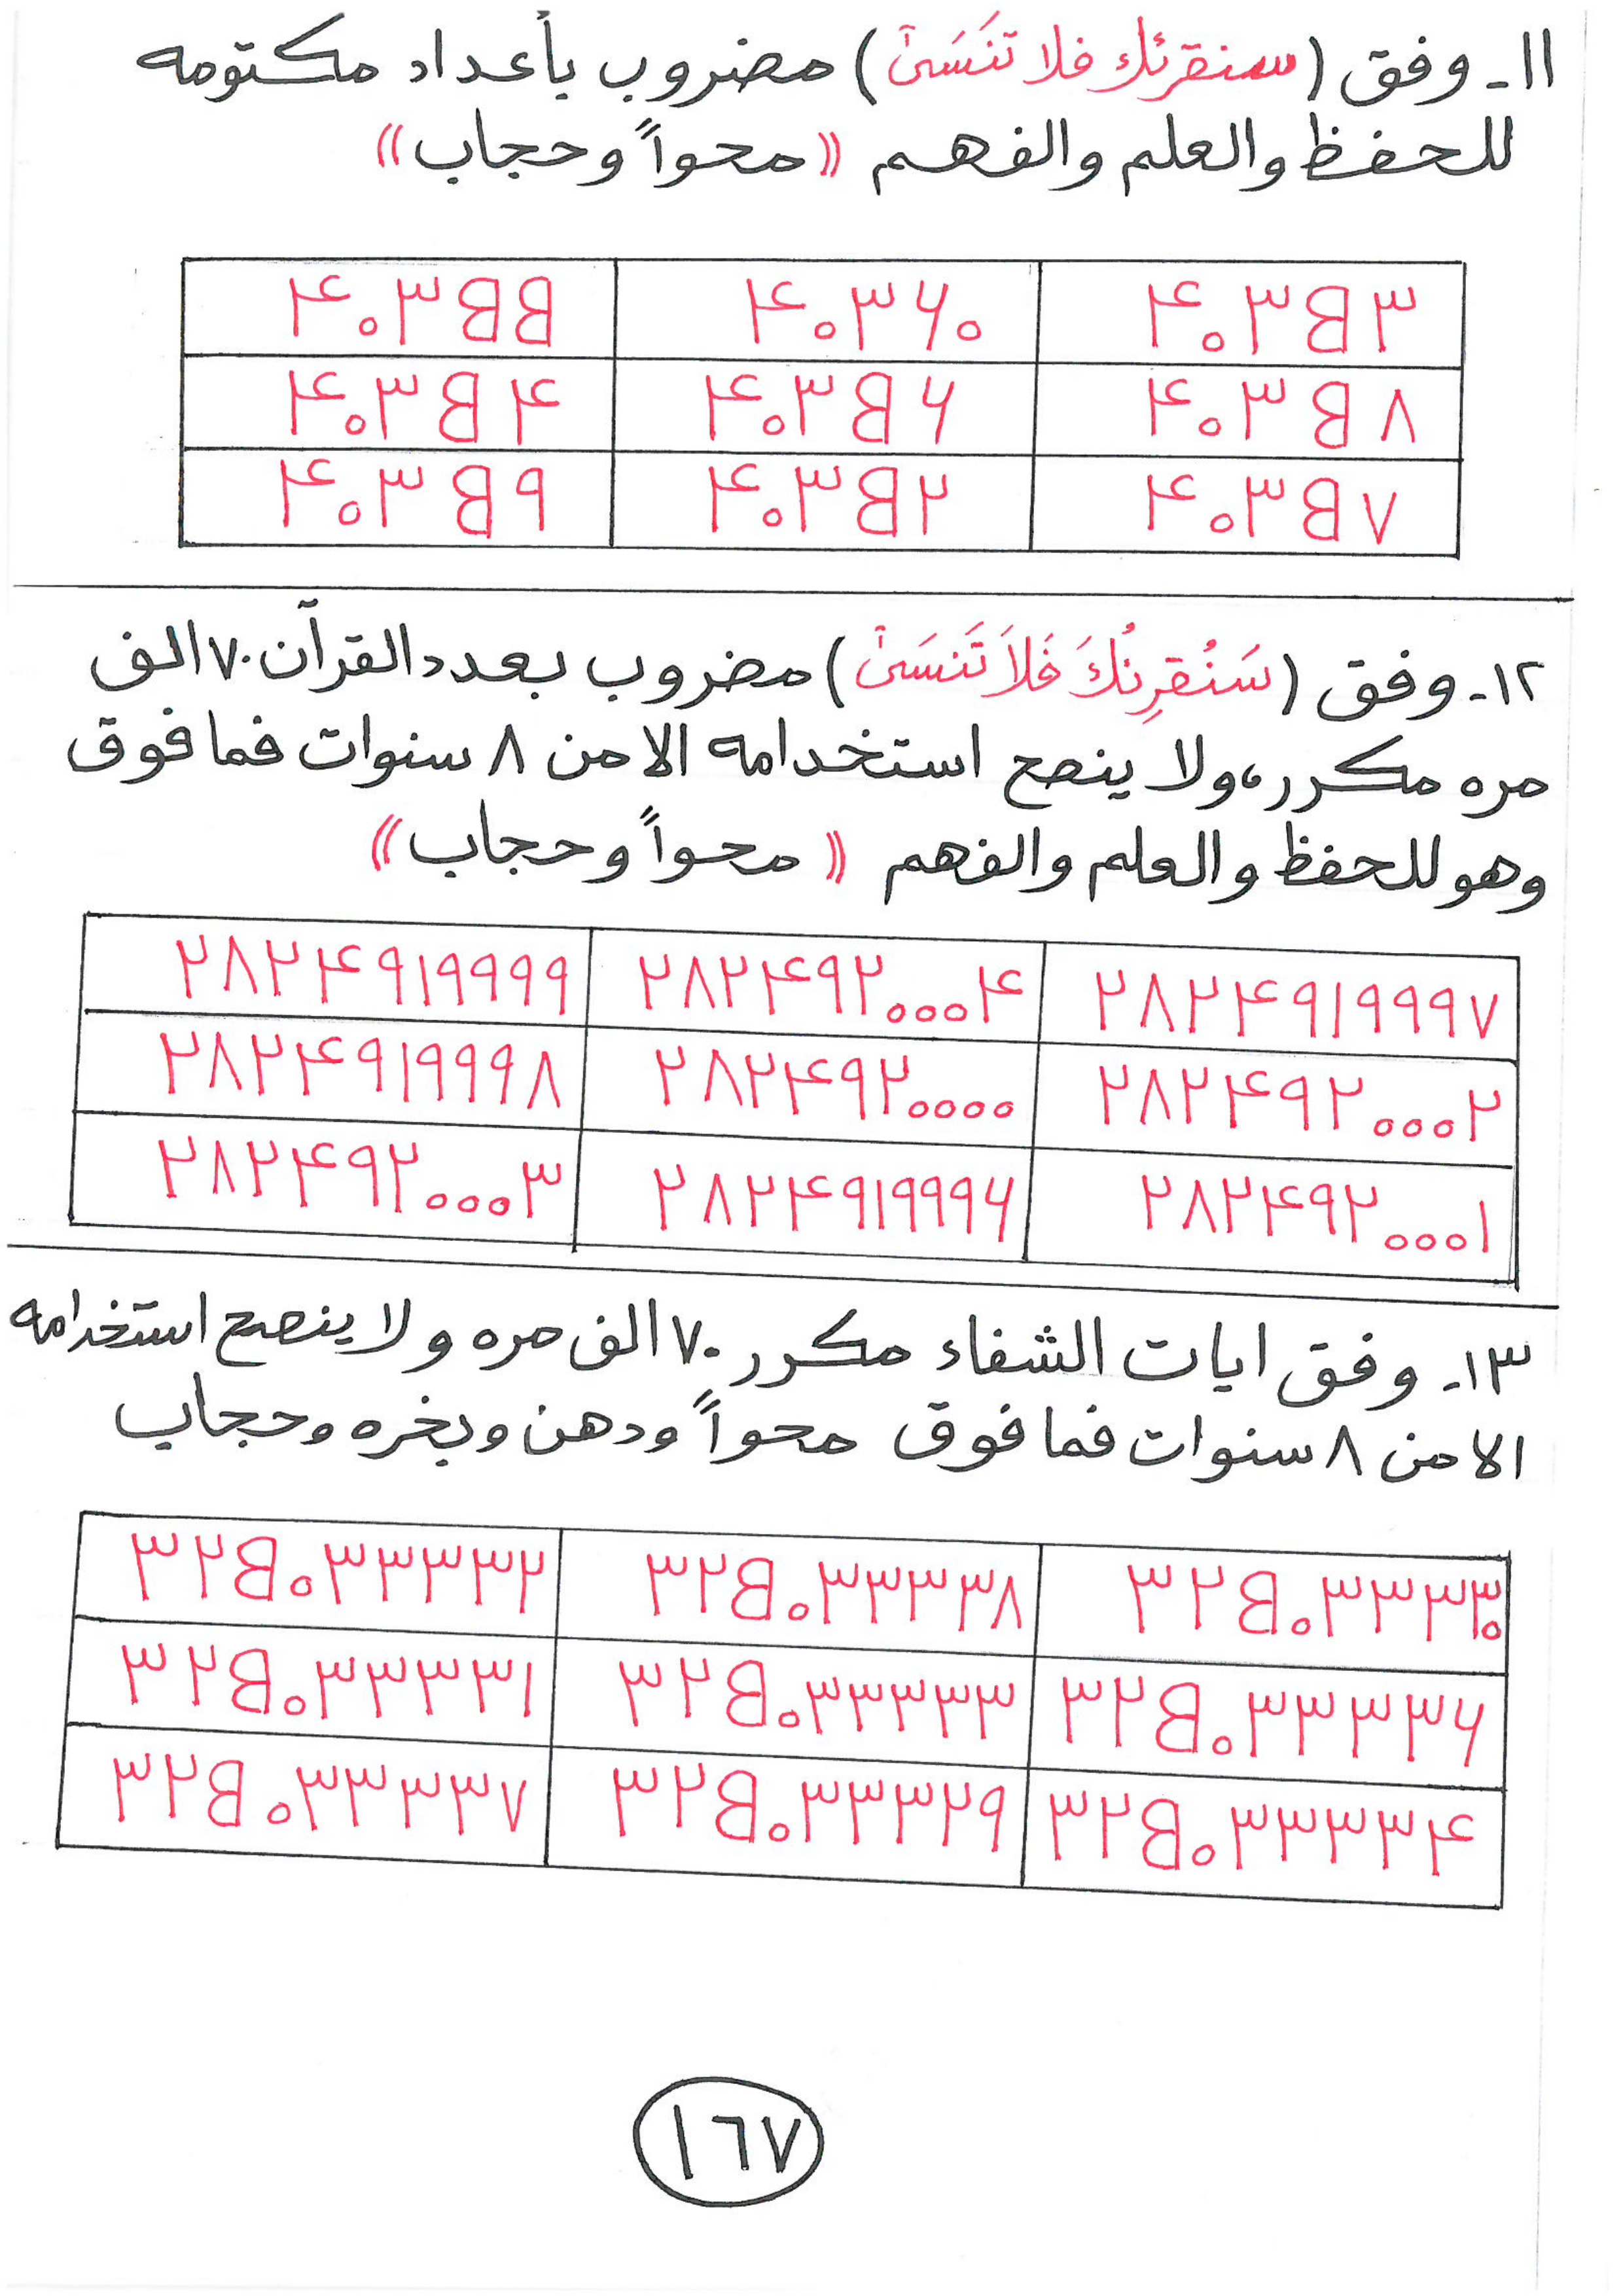 ١١- وفق (سنقرئك فلا تنَسَىٰ) مضروب بأعداد مكتومه
للحفظ والعلم والفهم ((محواً وحجاب))
٤٠٣B٣ ٤٠٣٦٠ ٤٠٣BB
٤٠٣B٨ ٤٠٣B٦ ٤٠٣B٤
٤٠٣B٧ ٤٠٣B٢ ٤٠٣B٩
١٢- وفق (سَنُقرِئُكَ فَلاَ تَنسَىٰ) مضروب بعدد القرآن ٧٠ الف
مره مكرر، ولا ينصح استخدامه الا من ٨ سنوات فما فوق
وهو للحفظ والعلم والفهم ((محواً وحجاب))
٢٨٢٤٩١٩٩٩٧ ٢٨٢٤٩٢٠٠٠٤ ٢٨٢٤٩١٩٩٩٩
٢٨٢٤٩٢٠٠٠٢ ٢٨٢٤٩٢٠٠٠٠ ٢٨٢٤٩١٩٩٩٨
٢٨٢٤٩٢٠٠٠١ ٢٨٢٤٩١٩٩٩٦ ٢٨٢٤٩٢٠٠٠٣
١٣- وفق ايات الشفاء مكرر ٧٠ الف مره ولا ينصح استخدامه
الا من ٨ سنوات فما فوق محواً ودهن وبخره وحجاب
٣٢B٠٣٣٣٣٠ ٣٢B٠٣٣٣٣٧ ٣٢B٠٣٣٣٣٢
٣٢B٠٣٣٣٣٦ ٣٢B٠٣٣٣٣٣ ٣٢B٠٣٣٣٣١
٣٢B٠٣٣٣٣٤ ٣٢B٠٣٣٣٢٩ ٣٢B٠٣٣٣٣٨
١٦٧